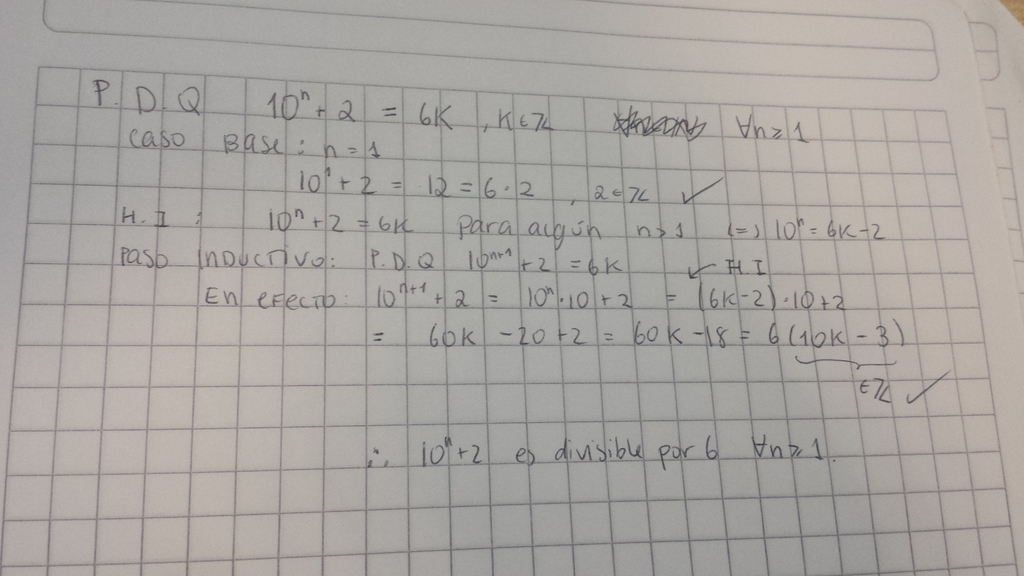 P. D. Q 10ⁿ + 2 = 6K , K ∈ ℤ ∀n ≥ 1
Caso Base: n = 1
10¹ + 2 = 12 = 6 · 2 , 2 ∈ ℤ ✓
H. I : 10ⁿ + 2 = 6K Para algún n ≥ 1 (=) 10ⁿ = 6K - 2
Paso Inductivo: P. D. Q 10ⁿ⁺¹ + 2 = 6K ↙ H. I
En efecto: 10ⁿ⁺¹ + 2 = 10ⁿ · 10 + 2 = (6K - 2) · 10 + 2
= 60K - 20 + 2 = 60K - 18 = 6 (10K - 3)
∈ ℤ ✓
∴ 10ⁿ + 2 es divisible por 6 ∀n ≥ 1.